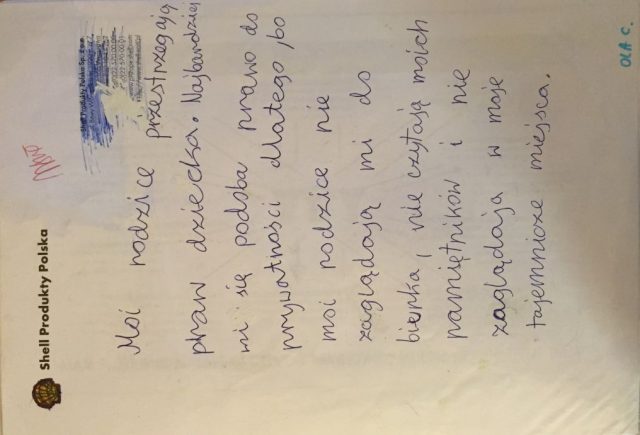 Shell Produkty Polska
Moi rodzice przestrzegają
praw dziecka. Najbardziej
mi się podoba prawo do
prywatności dlatego, bo
moi rodzice nie
zaglądają mi do
biurka, nie czytają moich
pamiętników i nie
zaglądają w moje
tajemnicze miejsca.
OLA C.